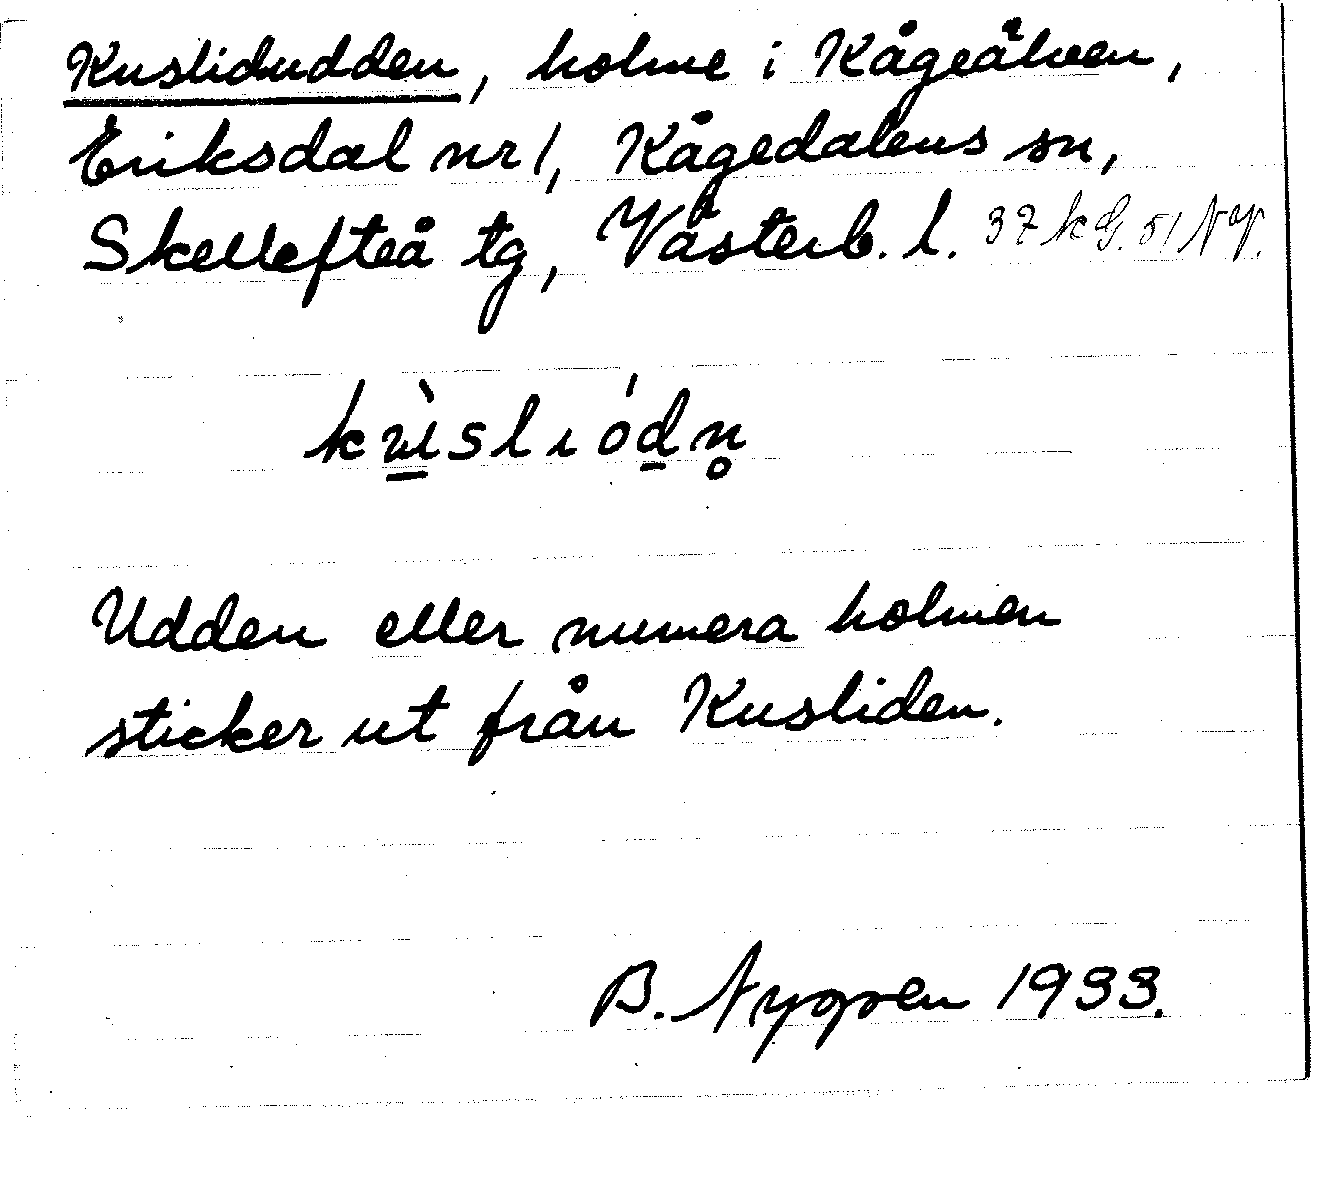 Kuslidudden, holme i Kågeälven,
Eriksdal nr 1, Kågedalens sn,
Skellefteå tg, Västerb. l. 37 k G. 51 Nyr.
kùslıódn̥
Udden eller numera holmen
sticker ut från Kusliden.
B. Nygren 1933.